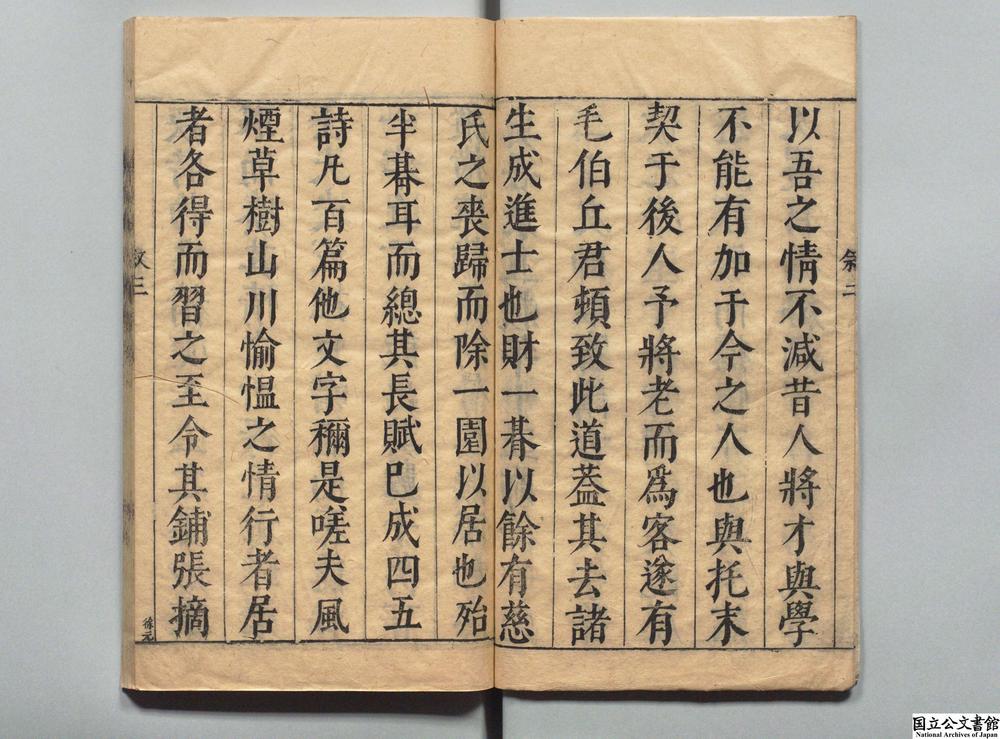 敘二
以吾之情不減昔人將才與學
不能有加于今之人也與托末
契于後人予將老而爲客遂有
毛伯丘君頓致此道葢其去諸
生成進士也財一朞以餘有慈
氏之喪歸而除一園以居也殆
半朞耳而總其長賦已成四五
詩凡百篇他文字稱是嗟夫風
煙草樹山川愉愠之情行者居
者各得而習之至令其鋪張摘
敘三
徐元
国立公文書館
National Archives of Japan